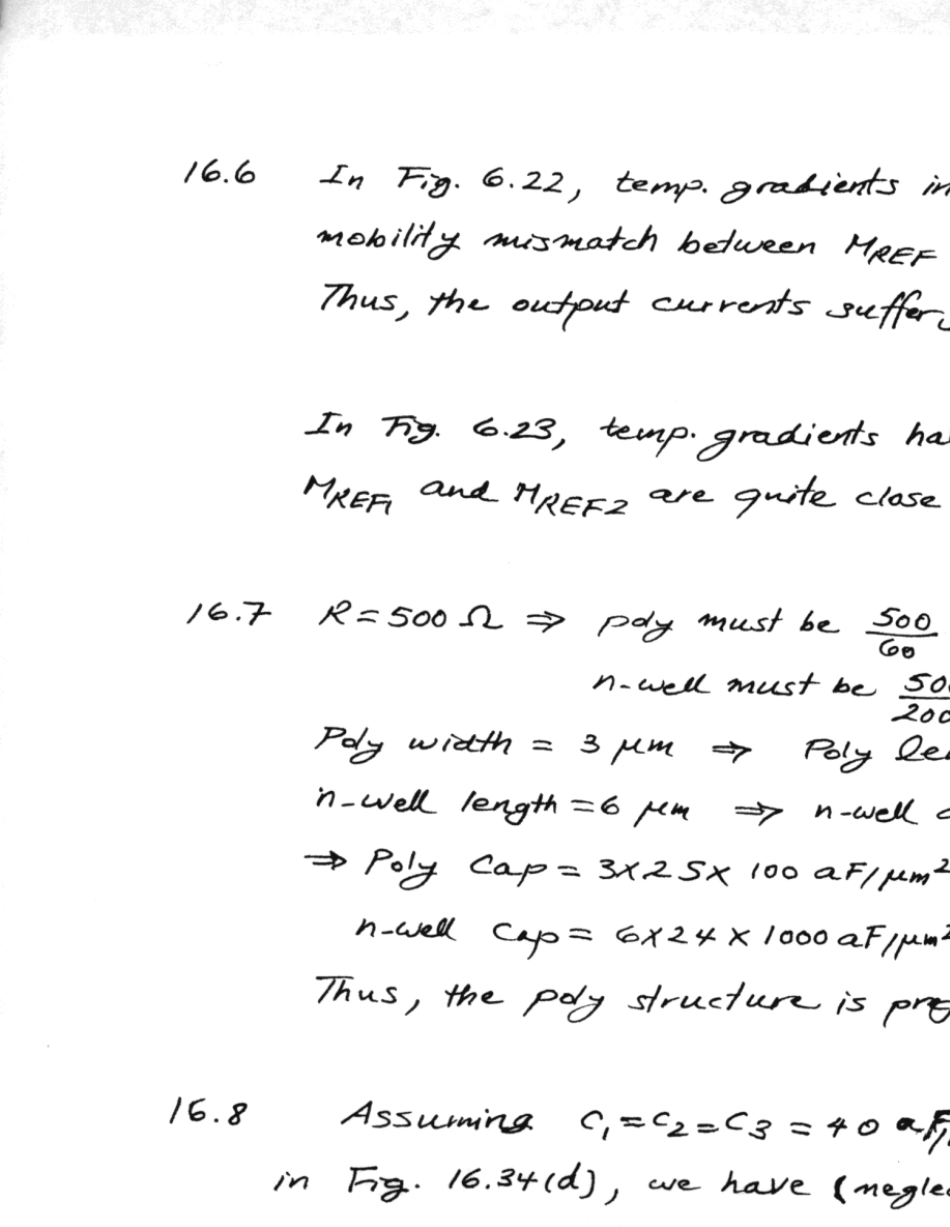 16.6 In Fig. 6.22, temp. gradients in
mobility mismatch between MREF
Thus, the output currents suffer
In Fig. 6.23, temp. gradients ha
MREF1 and MREF2 are quite close
16.7 R = 500 Ω ⇒ poly must be 500/60
n-well must be 500/200
Poly width = 3 μm ⇒ Poly le
n-well length = 6 μm ⇒ n-well
⇒ Poly Cap = 3×25× 100 aF/μm²
n-well Cap = 6×24×1000 aF/μm²
Thus, the poly structure is pre
16.8 Assuming C₁=C₂=C₃ = 40 aF/
in Fig. 16.34(d), we have (negle